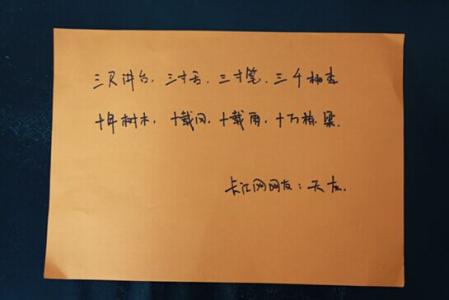 三尺讲台，三寸舌，三寸笔，三千桃李
十年树木，十载风，十载雨，十万栋梁.
长江网网友：天龙.